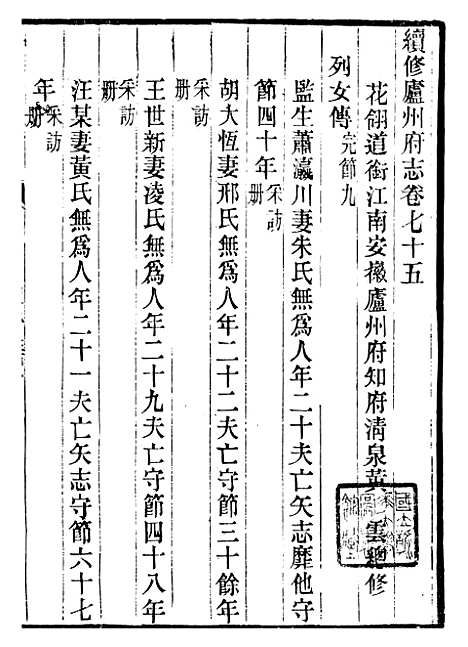 續修廬州府志卷七十五
花翎道銜江南安徽廬州府知府清泉黃雲總修
列女傳完節九
監生蕭瀛川妻朱氏無爲人年二十夫亡矢志靡他守
節四十年采訪册
胡大恆妻邢氏無爲人年二十二夫亡守節三十餘年
采訪册
王世新妻凌氏無爲人年二十九夫亡守節四十八年
采訪册
汪某妻黃氏無爲人年二十一夫亡矢志守節六十七
年采訪册